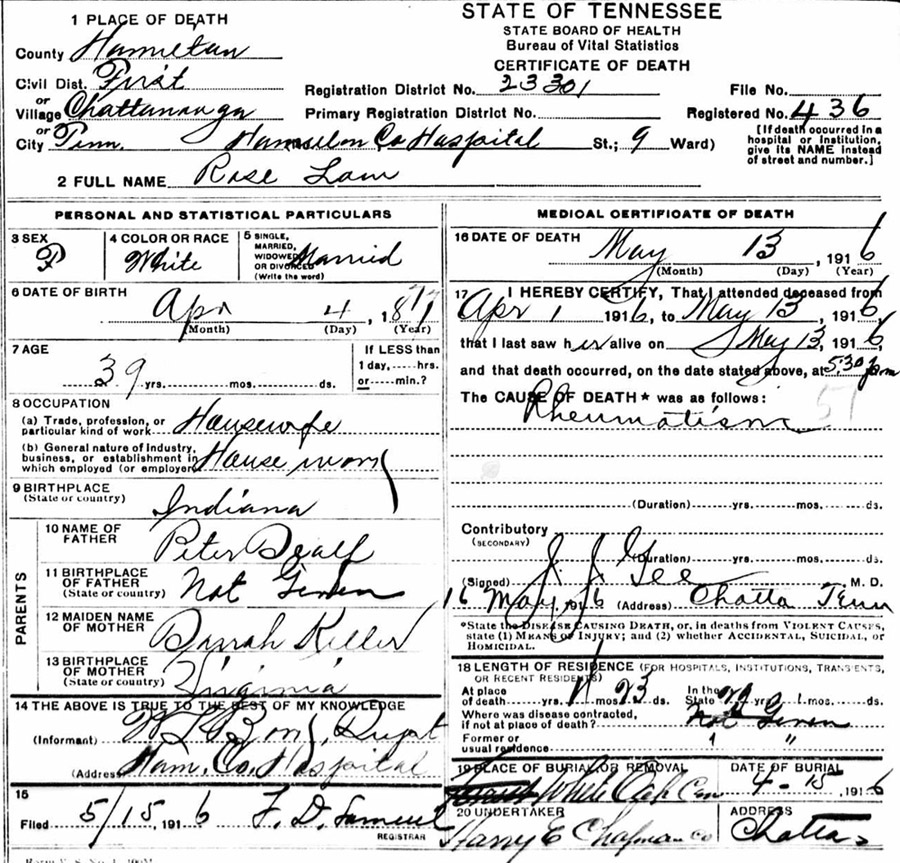 STATE OF TENNESSEE
STATE BOARD OF HEALTH
Bureau of Vital Statistics
CERTIFICATE OF DEATH
1 PLACE OF DEATH
County Hamilton
Civil Dist. First
or
Village Chattanooga
or
City Tenn. Hamilton Co Hospital St.; 9 Ward)
Registration District No. 23301 File No.
Primary Registration District No. Registered No. 436
[If death occurred in a
hospital or institution,
give its NAME instead
of street and number.]
2 FULL NAME Rose Lam
PERSONAL AND STATISTICAL PARTICULARS
3 SEX F
4 COLOR OR RACE White
5 SINGLE,
MARRIED,
WIDOWED
OR DIVORCED
(Write the word) Married
6 DATE OF BIRTH Apr 4, 1877
(Month) (Day) (Year)
7 AGE 39 yrs. mos. ds.
If LESS than
1 day, hrs.
or min.?
8 OCCUPATION
(a) Trade, profession, or
particular kind of work Housewife
(b) General nature of Industry,
business, or establishment in
which employed (or employer) House work
9 BIRTHPLACE
(State or country) Indiana
PARENTS
10 NAME OF
FATHER Peter
11 BIRTHPLACE
OF FATHER
(State or country) Not Given
12 MAIDEN NAME
OF MOTHER Keller
13 BIRTHPLACE
OF MOTHER
(State or country) Virginia
14 THE ABOVE IS TRUE TO THE BEST OF MY KNOWLEDGE
(Informant) Supt
(Address) Ham. Co. Hospital
15
Filed 5/15, 1916 F. D.
REGISTRAR
MEDICAL CERTIFICATE OF DEATH
16 DATE OF DEATH May 13, 1916
(Month) (Day) (Year)
17 I HEREBY CERTIFY, That I attended deceased from
Apr 1 1916, to May 13, 1916,
that I last saw her alive on May 13, 1916,
and that death occurred, on the date stated above, at 5:30 m
The CAUSE OF DEATH* was as follows:
Rheumatism
(Duration) yrs. mos. ds.
Contributory
(SECONDARY)
(Duration) yrs. mos. ds.
(Signed) J. J. Gee M. D.
16 May, 1916 (Address) Chatta Tenn
*State the DISEASE CAUSING DEATH, or, in deaths from VIOLENT CAUSES,
state (1) MEANS OF INJURY; and (2) whether ACCIDENTAL, SUICIDAL, or
HOMICIDAL.
18 LENGTH OF RESIDENCE (FOR HOSPITALS, INSTITUTIONS, TRANSIENTS,
OR RECENT RESIDENTS)
At place
of death yrs. 1 mos. 23 ds. In the
State yrs. mos. ds.
Where was disease contracted,
if not at place of death? Not Given
Former or
usual residence " "
19 PLACE OF BURIAL OR REMOVAL White Oak Cem
DATE OF BURIAL 4-15, 1916
20 UNDERTAKER Harry E Chapman Co
ADDRESS Chatta